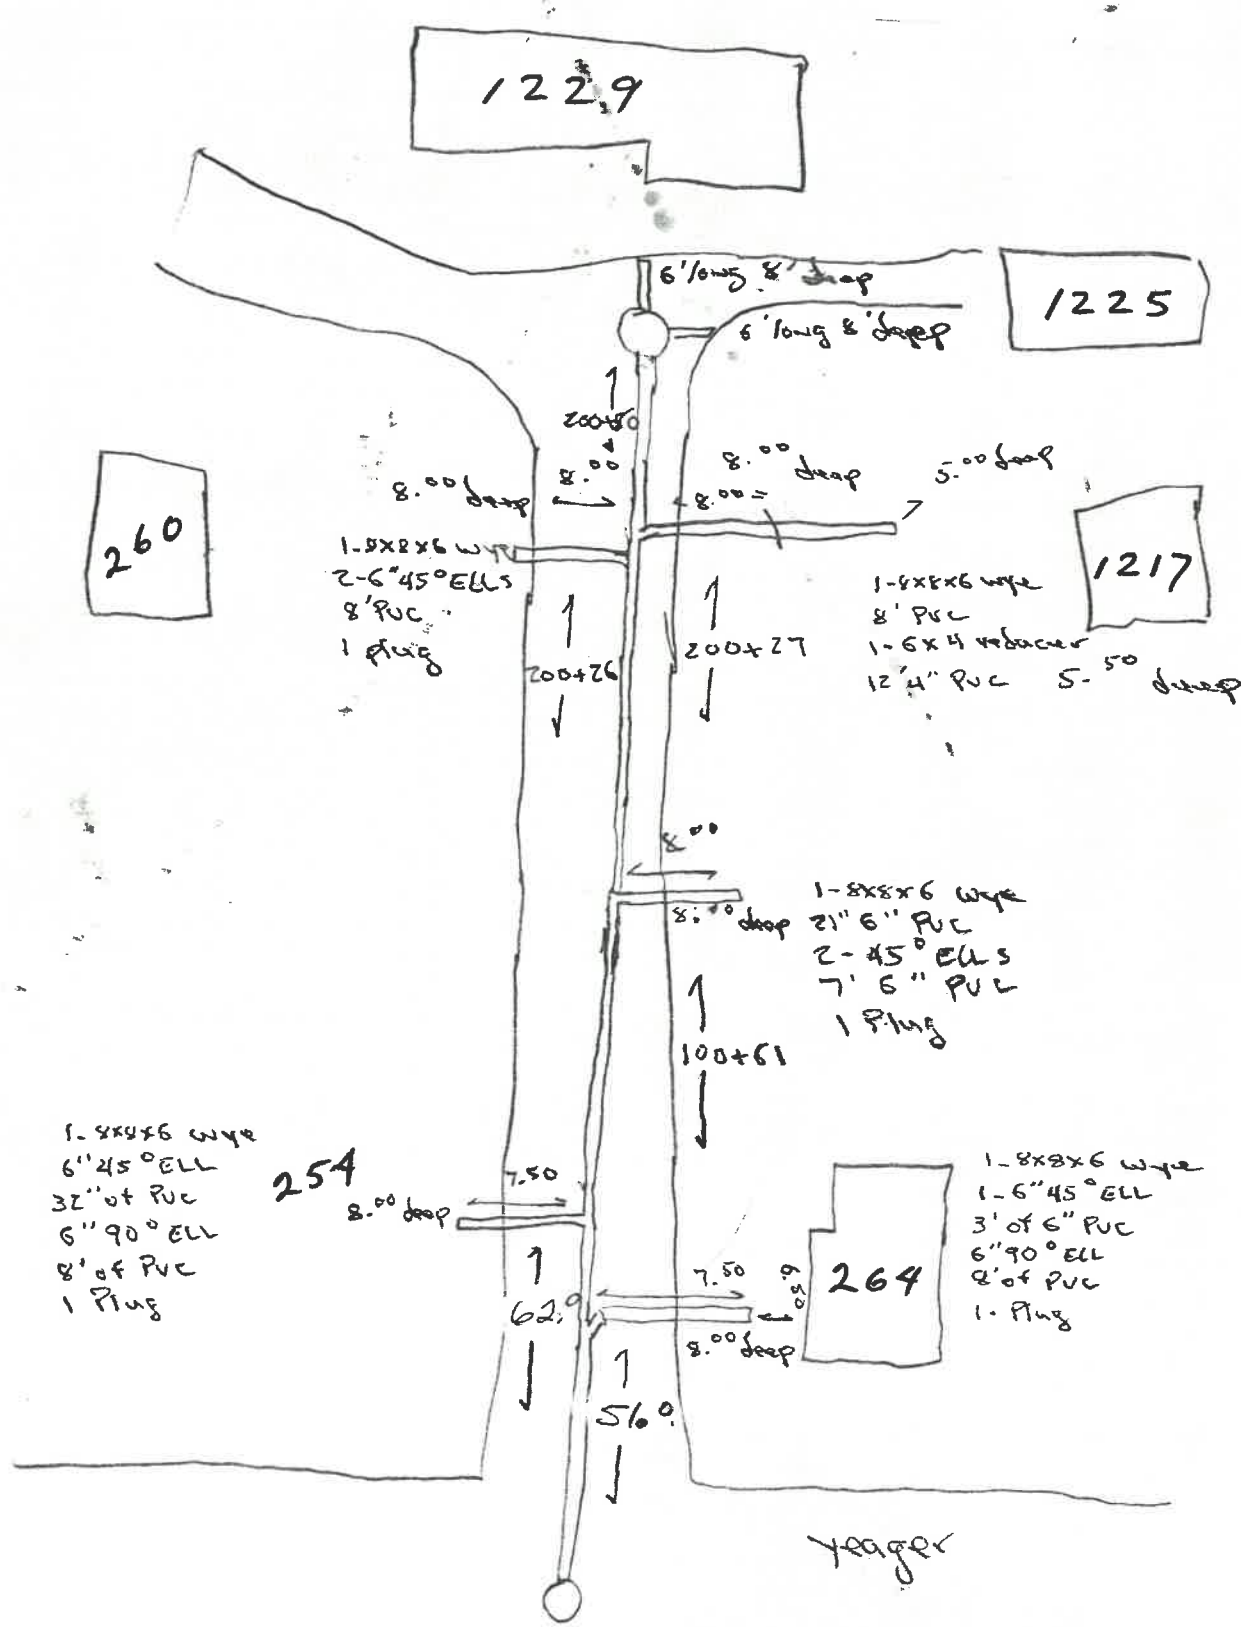 1229
6' long 8' deep
1225
6' long 8' deep
200+50
8.00 deep
8.00
8.00 deep
8.00
5.00 deep
260
1-8x8x6 wye
2-6"45° ELLS
8' PVC
1 plug
1217
1-8x8x6 wye
8' PVC
1-6x4 reducer
12' 4" PVC 5.50 deep
200+26
200+27
8.00
8.00 deep
1-8x8x6 wye
21" 6" PVC
2-45° ELLS
7' 6" PVC
1 Plug
100+61
1-8x8x6 wye
6" 45° ELL
32" of PVC
6" 90° ELL
8' of PVC
1 Plug
254
7.50
8.00 deep
62.0
7.50
6.50
8.00 deep
264
1-8x8x6 wye
1-6"45° ELL
3' of 6" PVC
6"90° ELL
8' of PVC
1-Plug
56 0.
yeager